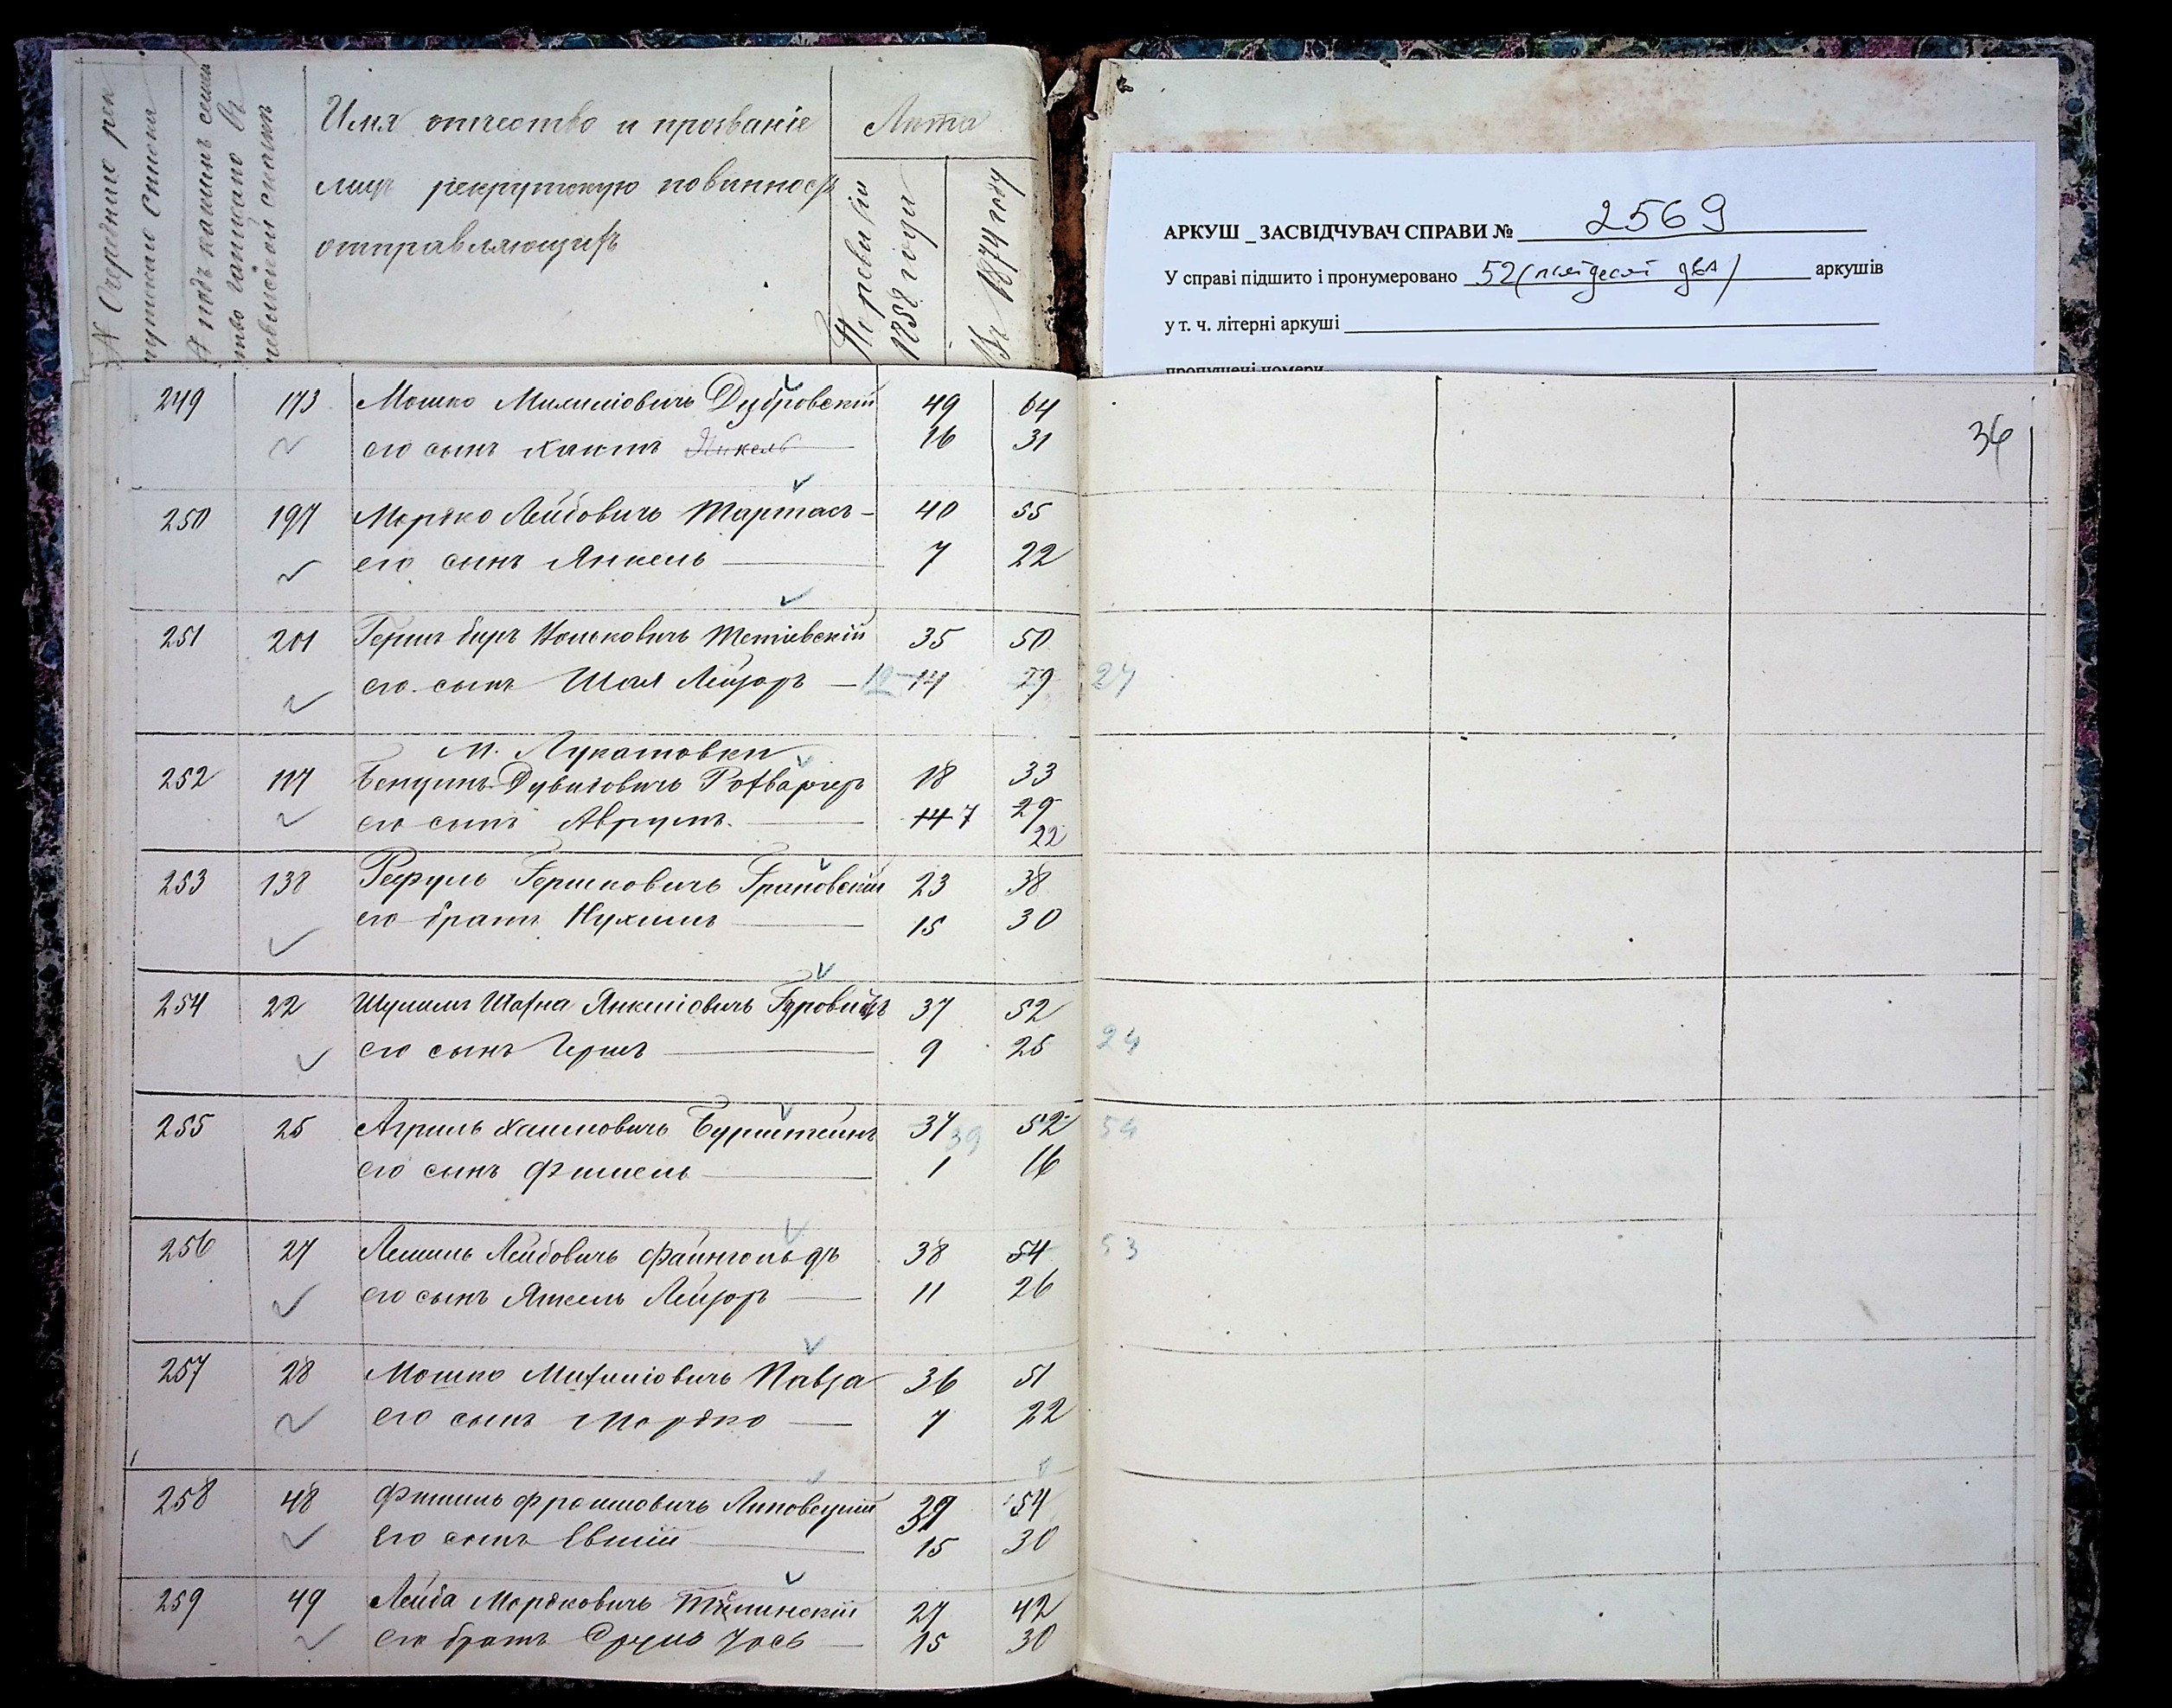 № Очередные рек
рутскаго списка
№ подъ какимъ семей
ство записано въ
ревизской сказкѣ
Имя отчество и прозваніе
лицъ рекрутскую повинность
отправляющихъ
Лѣта
По ревизіи
1858 года
Въ 1874 году
АРКУШ _ ЗАСВІДЧУВАЧ СПРАВИ № 2569
У справі підшито і пронумеровано 52 (пятдесят два) аркушів
у т. ч. літерні аркуші
пропущені номери
36
249 173 Мошко Дубровскій 49 64
его сынъ Хаимъ Янкель 16 31
250 197 Мордко Лейбовичъ Тартасъ 40 55
его сынъ Янкель 7 22
251 201 Гершъ Беръ Ицьковичъ Тетіевскій 35 50
его сынъ Шая Лейзоръ 12 14 29 27
М. Лукашовки
252 117 Бенцинъ Дувидовичъ 18 33
его сынъ Аврумъ 14 7 29
22
253 138 Рефуль Гершковичъ Грановскій 23 38
его братъ Нухимъ 15 30
254 22 Шулимъ Шахна Янкеліовичъ Гуровичъ 37 52
его сынъ Гершъ 9 25 24
255 25 Хаимовичъ Бурштейнъ 37 39 52 54
его сынъ Фишель 1 16
256 27 Лейбовичъ Файнгольдъ 38 54 53
его сынъ Янкель Лейзоръ 11 26
257 28 Мошко Михеліовичъ Павза 36 51
его сынъ Мордко 7 22
258 48 Фишель Фроимовичъ Липовецкій 39 54
Его сынъ Евшій 15 30
259 49 Лейба Мордковичъ 27 42
Его братъ Сруль Іось 15 30